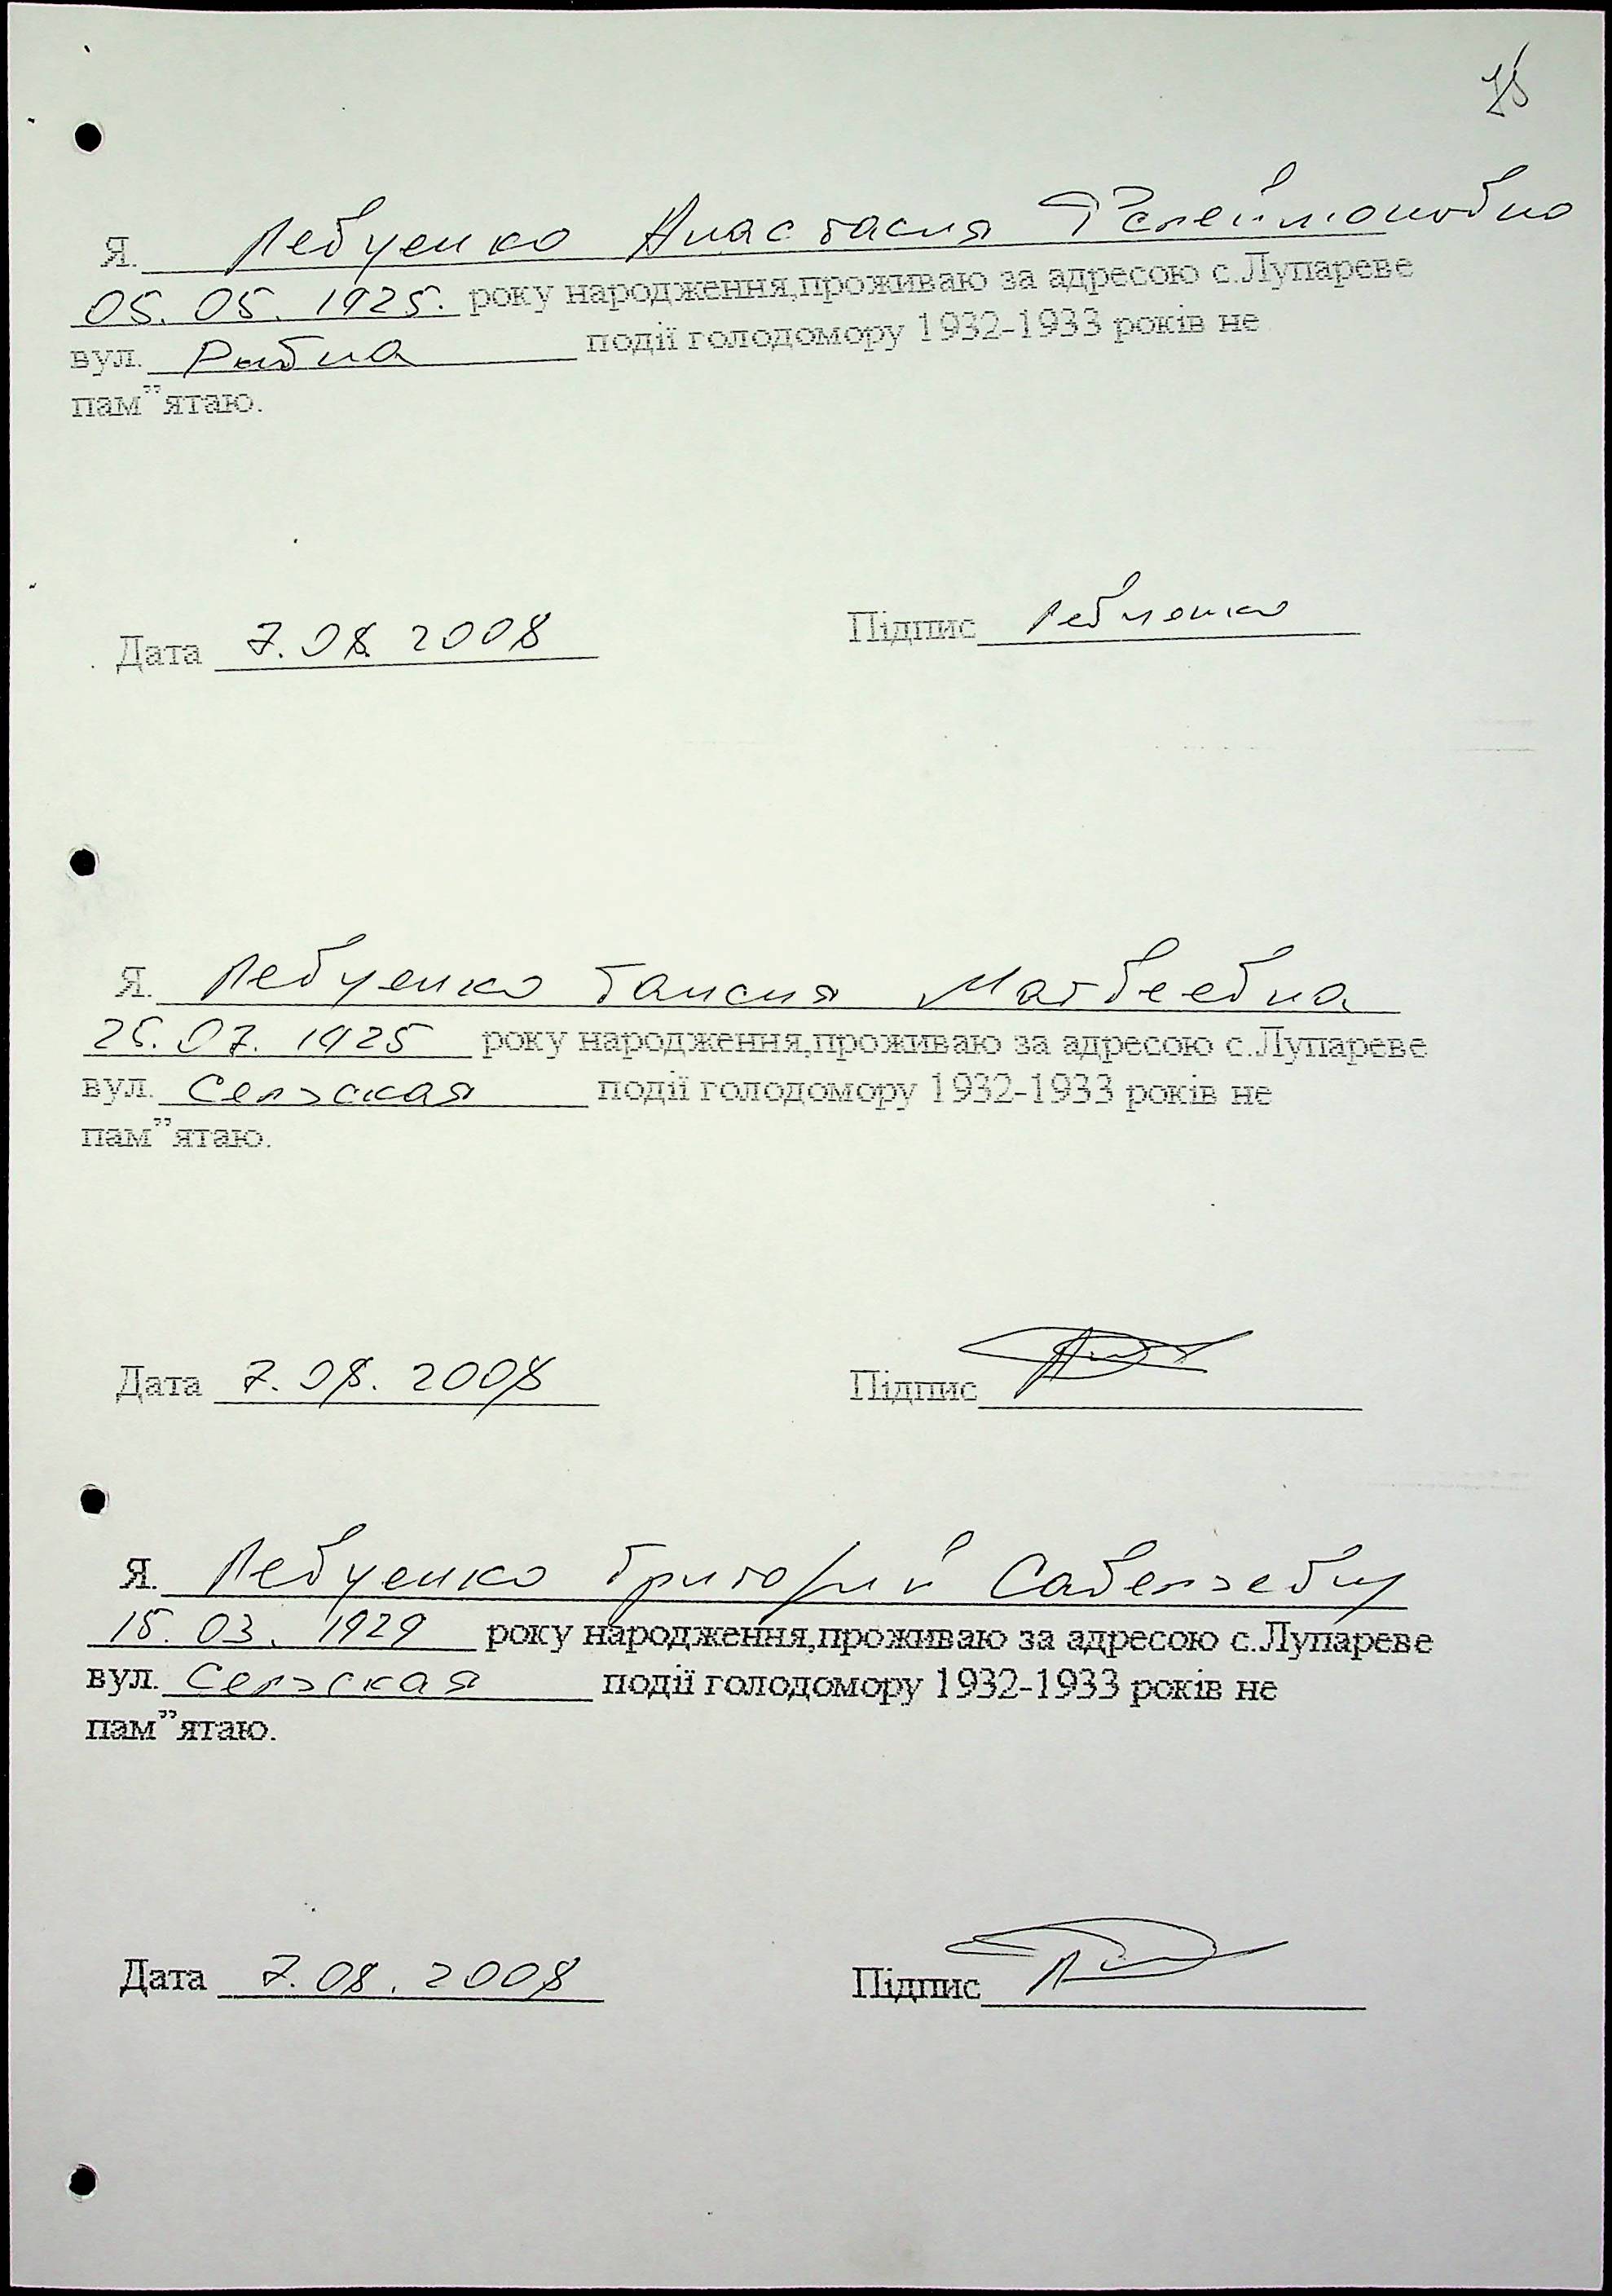 75
Я. Левченко Анастасия Фелеймоновна
05.05.1925. року народження,проживаю за адресою с.Лупареве
вул. Рыбна події голодомору 1932-1933 років не
пам”ятаю.
Дата 7.08.2008 Підпис Левченко
Я. Левченко Таисия Матвеевна
25.07.1925 року народження,проживаю за адресою с.Лупареве
вул. Сельская події голодомору 1932-1933 років не
пам”ятаю.
Дата 7.08.2008 Підпис
Я. Левченко Григорий Савельевич
15.03.1929 року народження,проживаю за адресою с.Лупареве
вул. Сельская події голодомору 1932-1933 років не
пам”ятаю.
Дата 7.08.2008 Підпис